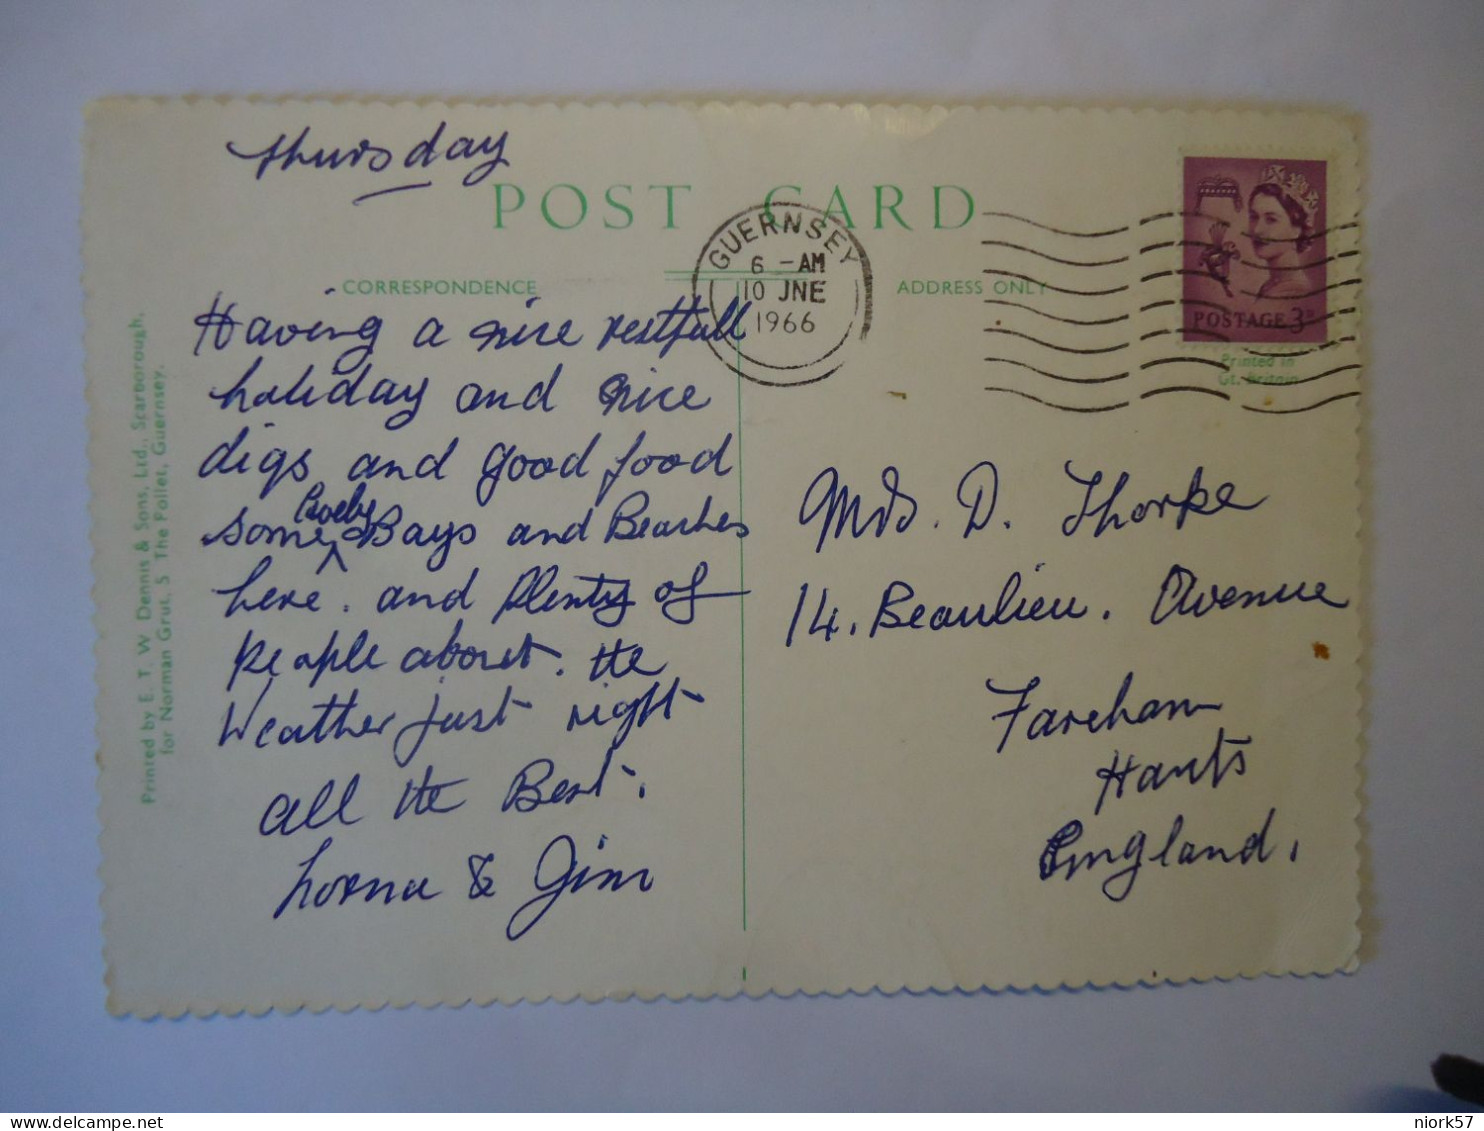 Thursday
POST CARD
GUERNSEY
6 - AM
10 JNE
1966
POSTAGE 3D
Printed in
Gt. Britain
CORRESPONDENCE
ADDRESS ONLY
Having a nice restfull
holiday and nice
digs and good food
some lovely Bays and Beaches
here. and Plenty of
people about. the
Weather just right
all the Best.
Lorna & Jim
Mrs. D. Thorpe
14. Beaulieu. Avenue
Fareham
Hants
England.
Printed by E. T. W. Dennis & Sons, Ltd., Scarborough,
for Norman Grut, 5 The Pollet, Guernsey.
niork57